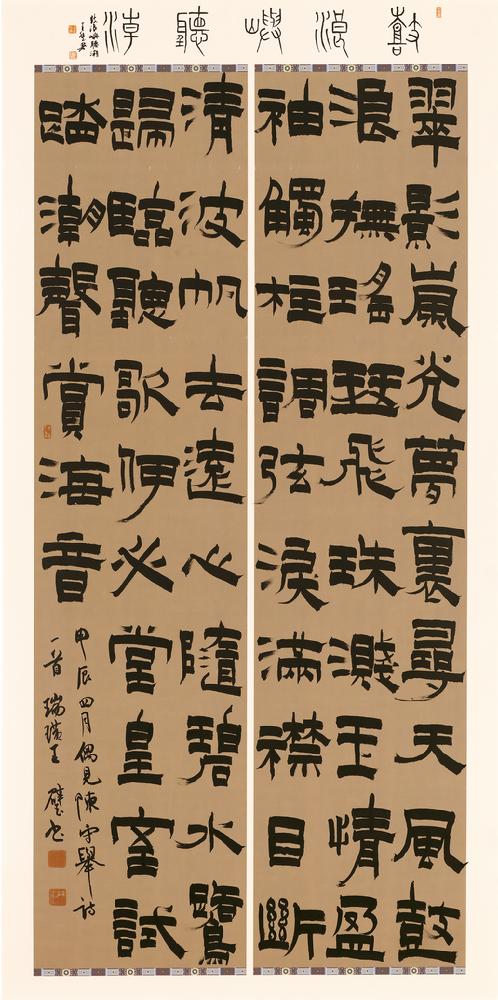 鼓浪嶼聽潮
翠影嵐光夢裏尋天風鼓
浪撫瑤琴飛珠濺玉情盈
袖觸柱調弦淚滿襟目斷
清波帆去遠心隨碧水鷺
歸臨聽歌何必堂皇室試
踏潮聲賞海音
甲辰四月偶見陳守舉詩
一首 瑞璜王璧書
鼓浪嶼聽潮